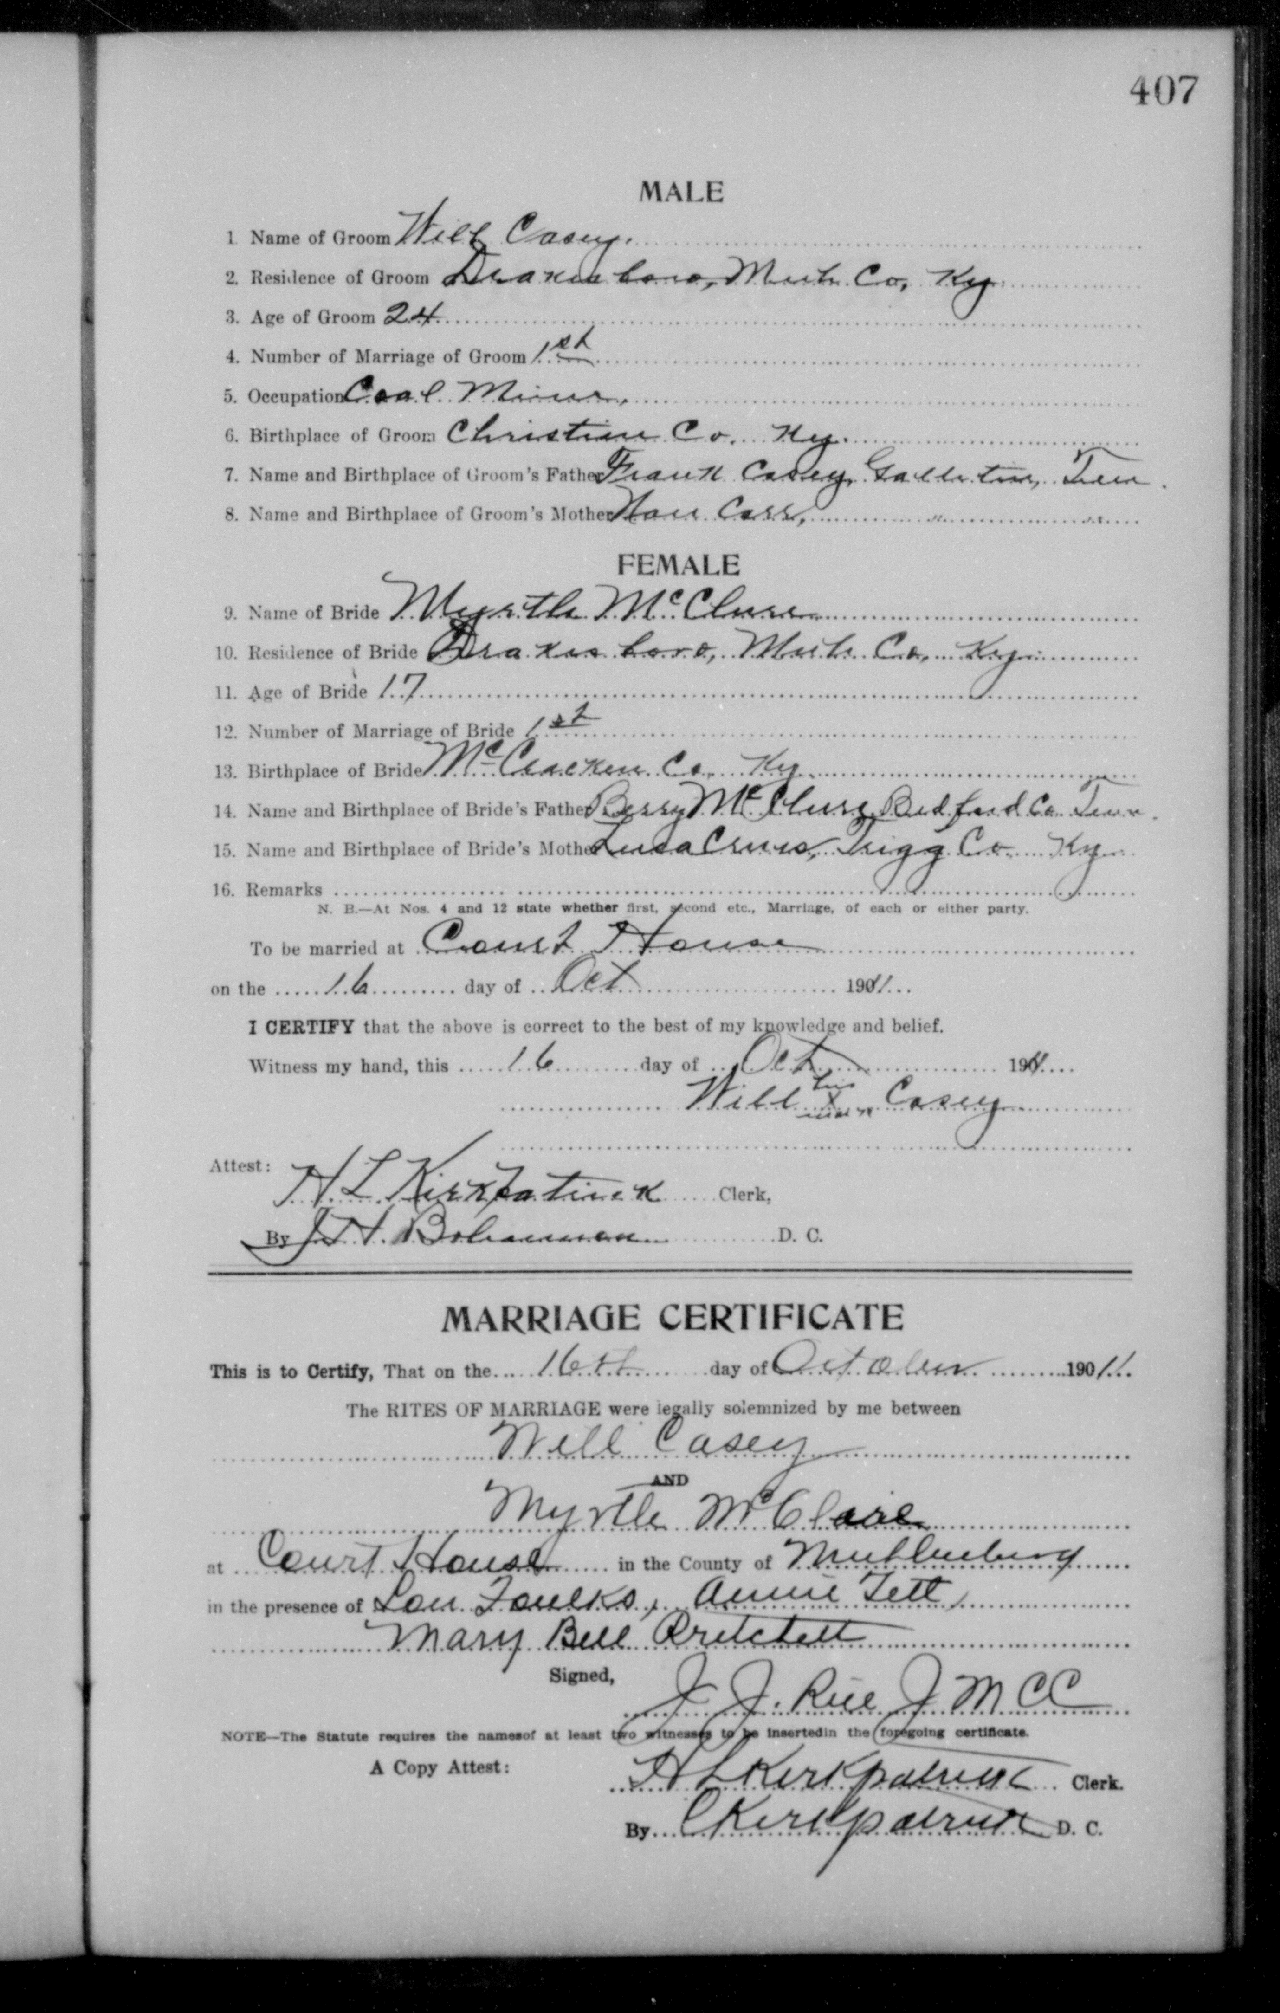 407
MALE
1. Name of Groom Will Casey.
2. Residence of Groom Drakesboro, Muh. Co, Ky
3. Age of Groom 24
4. Number of Marriage of Groom 1st
5. Occupation Coal Miner,
6. Birthplace of Groom Christian Co. Ky.
7. Name and Birthplace of Groom's Father Frank Casey, Gallatin, Tenn.
8. Name and Birthplace of Groom's Mother Nan Carr, " "
FEMALE
9. Name of Bride Myrtle McClure
10. Residence of Bride Drakesboro, Muh. Co, Ky.
11. Age of Bride 17
12. Number of Marriage of Bride 1st
13. Birthplace of Bride McCracken Co. Ky.
14. Name and Birthplace of Bride's Father Berry McClure, Bedford Co. Tenn.
15. Name and Birthplace of Bride's Mother Trigg Co. Ky
16. Remarks
N. B.—At Nos. 4 and 12 state whether first, second etc., Marriage, of each or either party.
To be married at Court House
on the 16 day of Oct 1911
I CERTIFY that the above is correct to the best of my knowledge and belief.
Witness my hand, this 16 day of Oct 1911
Will his x mark Casey
Attest:
H L Kirkpatrick Clerk,
By J. H. Bohannon D. C.
MARRIAGE CERTIFICATE
This is to Certify, That on the 16th day of October 190 11
The RITES OF MARRIAGE were legally solemnized by me between
Will Casey
AND
Myrtle McClure
at Court House in the County of Muhlenburg
in the presence of Lou Foulks, Annie Tett,
Mary Bell Pritchett
Signed,
J. J. Rice J M C C
NOTE—The Statute requires the namesof at least two witnesses to be insertedin the foregoing certificate.
A Copy Attest:
H L Kirkpatrick Clerk.
By C Kirkpatrick D. C.